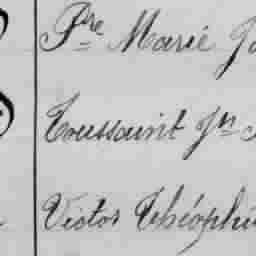 Pre Marie
Toussaint Jn
Victor Théophi